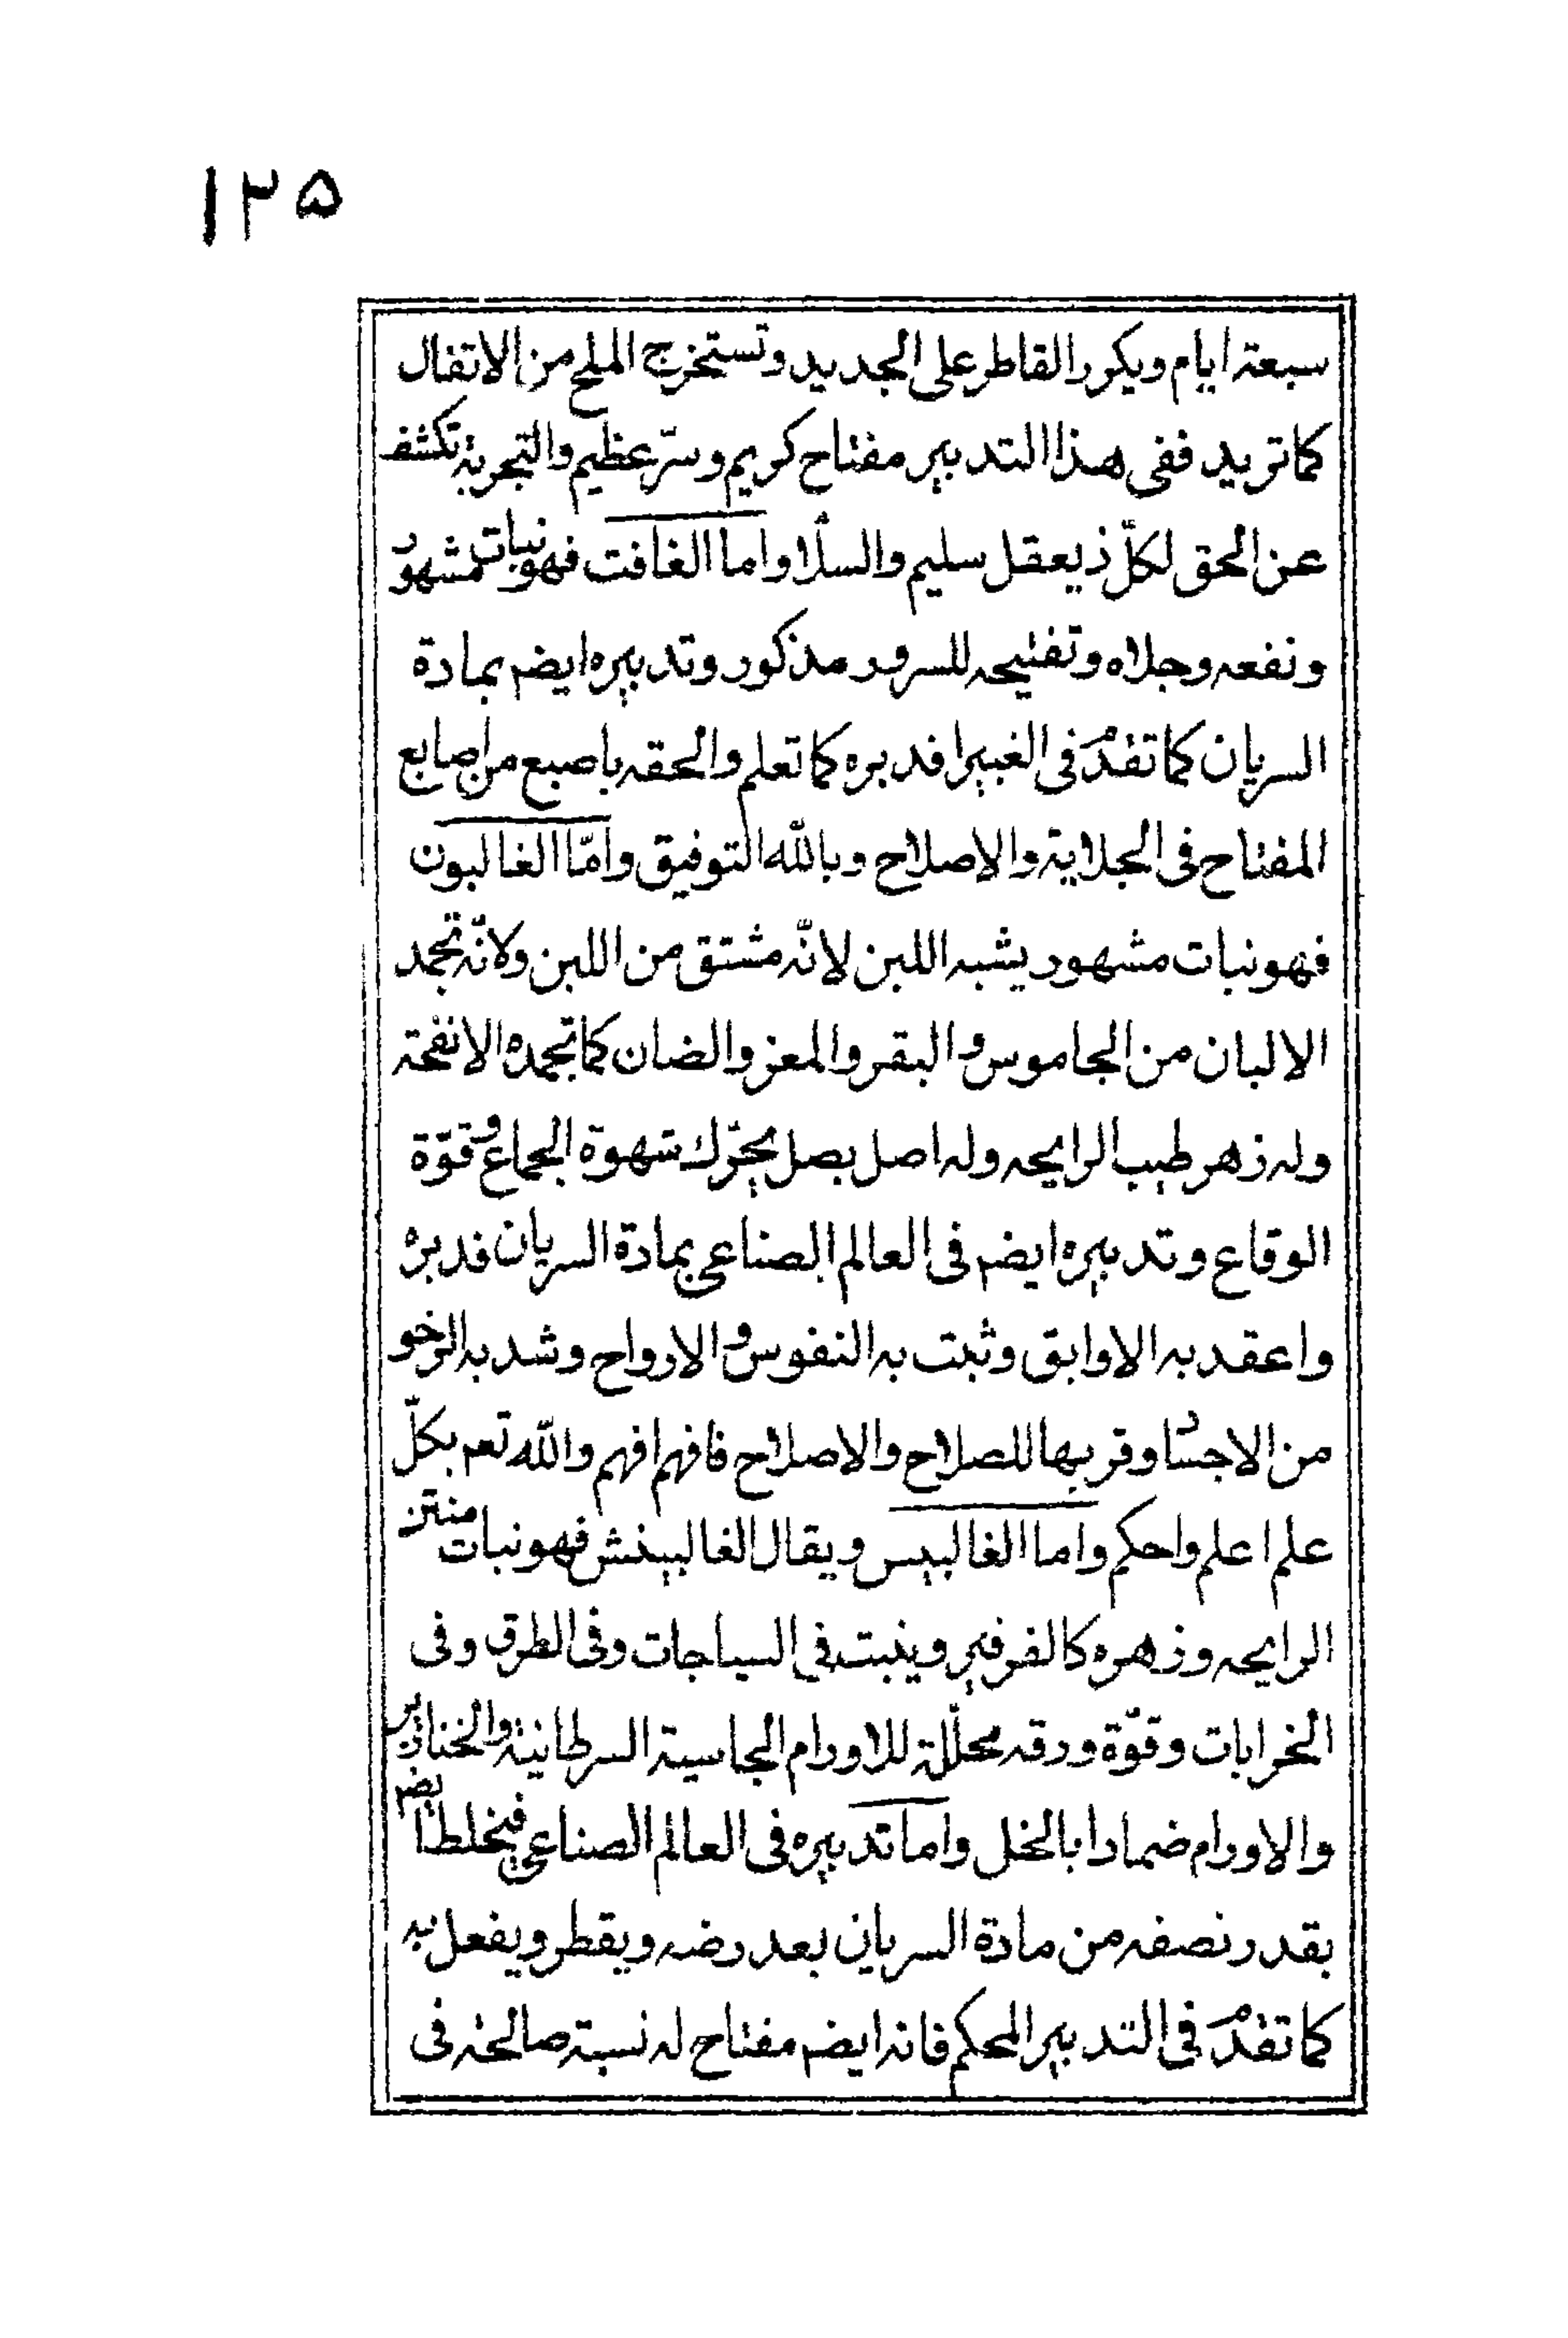 ١٢٥
سبعة ايام ويكور القاطر على الجديد وتستخرج الملح من الاتفال
كما تريد ففى هذا التدبير مفتاح كريم وسرّ عظيم والتجربة تكشف
عن الحق لكلّ ذيعقل سليم والسلام واما الغافت فهو نبات مشهور
ونفعه وجلاه وتفتيحه للسرور مذكور وتدبيره ايضم بمادة
السريان كما تقدّم فى الغبيرا فدبره كما تعلم والحقه باصبع من اصابع
المفتاح فى الجلاية والاصلاح وبالله التوفيق وامّا الغالبون
فهو نبات مشهور يشبه اللبن لانّه مشتق من اللبن ولانّه تجمد
الالبان من الجاموس والبقر والمعز والضان كما تجمده الانفحة
وله زهر طيب الرايحه وله اصل بصل يحرّك شهوة الجماع وقوّة
الوقاع وتدبيره ايضم فى العالم الصناعى بمادة السريان فدبره
واعقد به الاوابق وثبت به النفوس والارواح وشد به الرخو
من الاجساد وقربها للصلاح والاصلاح فافهم افهم والله تعم بكلّ
علم اعلم واحكم واما الغالبيس ويقال الغالبينش فهو نبات منتن
الرايحه وزهره كالفرفير وينبت فى السياجات وفى الطرق وفى
الخرابات وقوّة ورقه محلّلة للاورام الجاسية السرطانية والخنازير
والاورام ضمادا بالخل واما تدبيره فى العالم الصناعى فيخلط ايضم
بقدر نصفه من مادة السريان بعد رضه ويقطر ويفعل به
كما تقدّم فى التدبير المحكم فانه ايضم مفتاح له نسبة صالحه فى